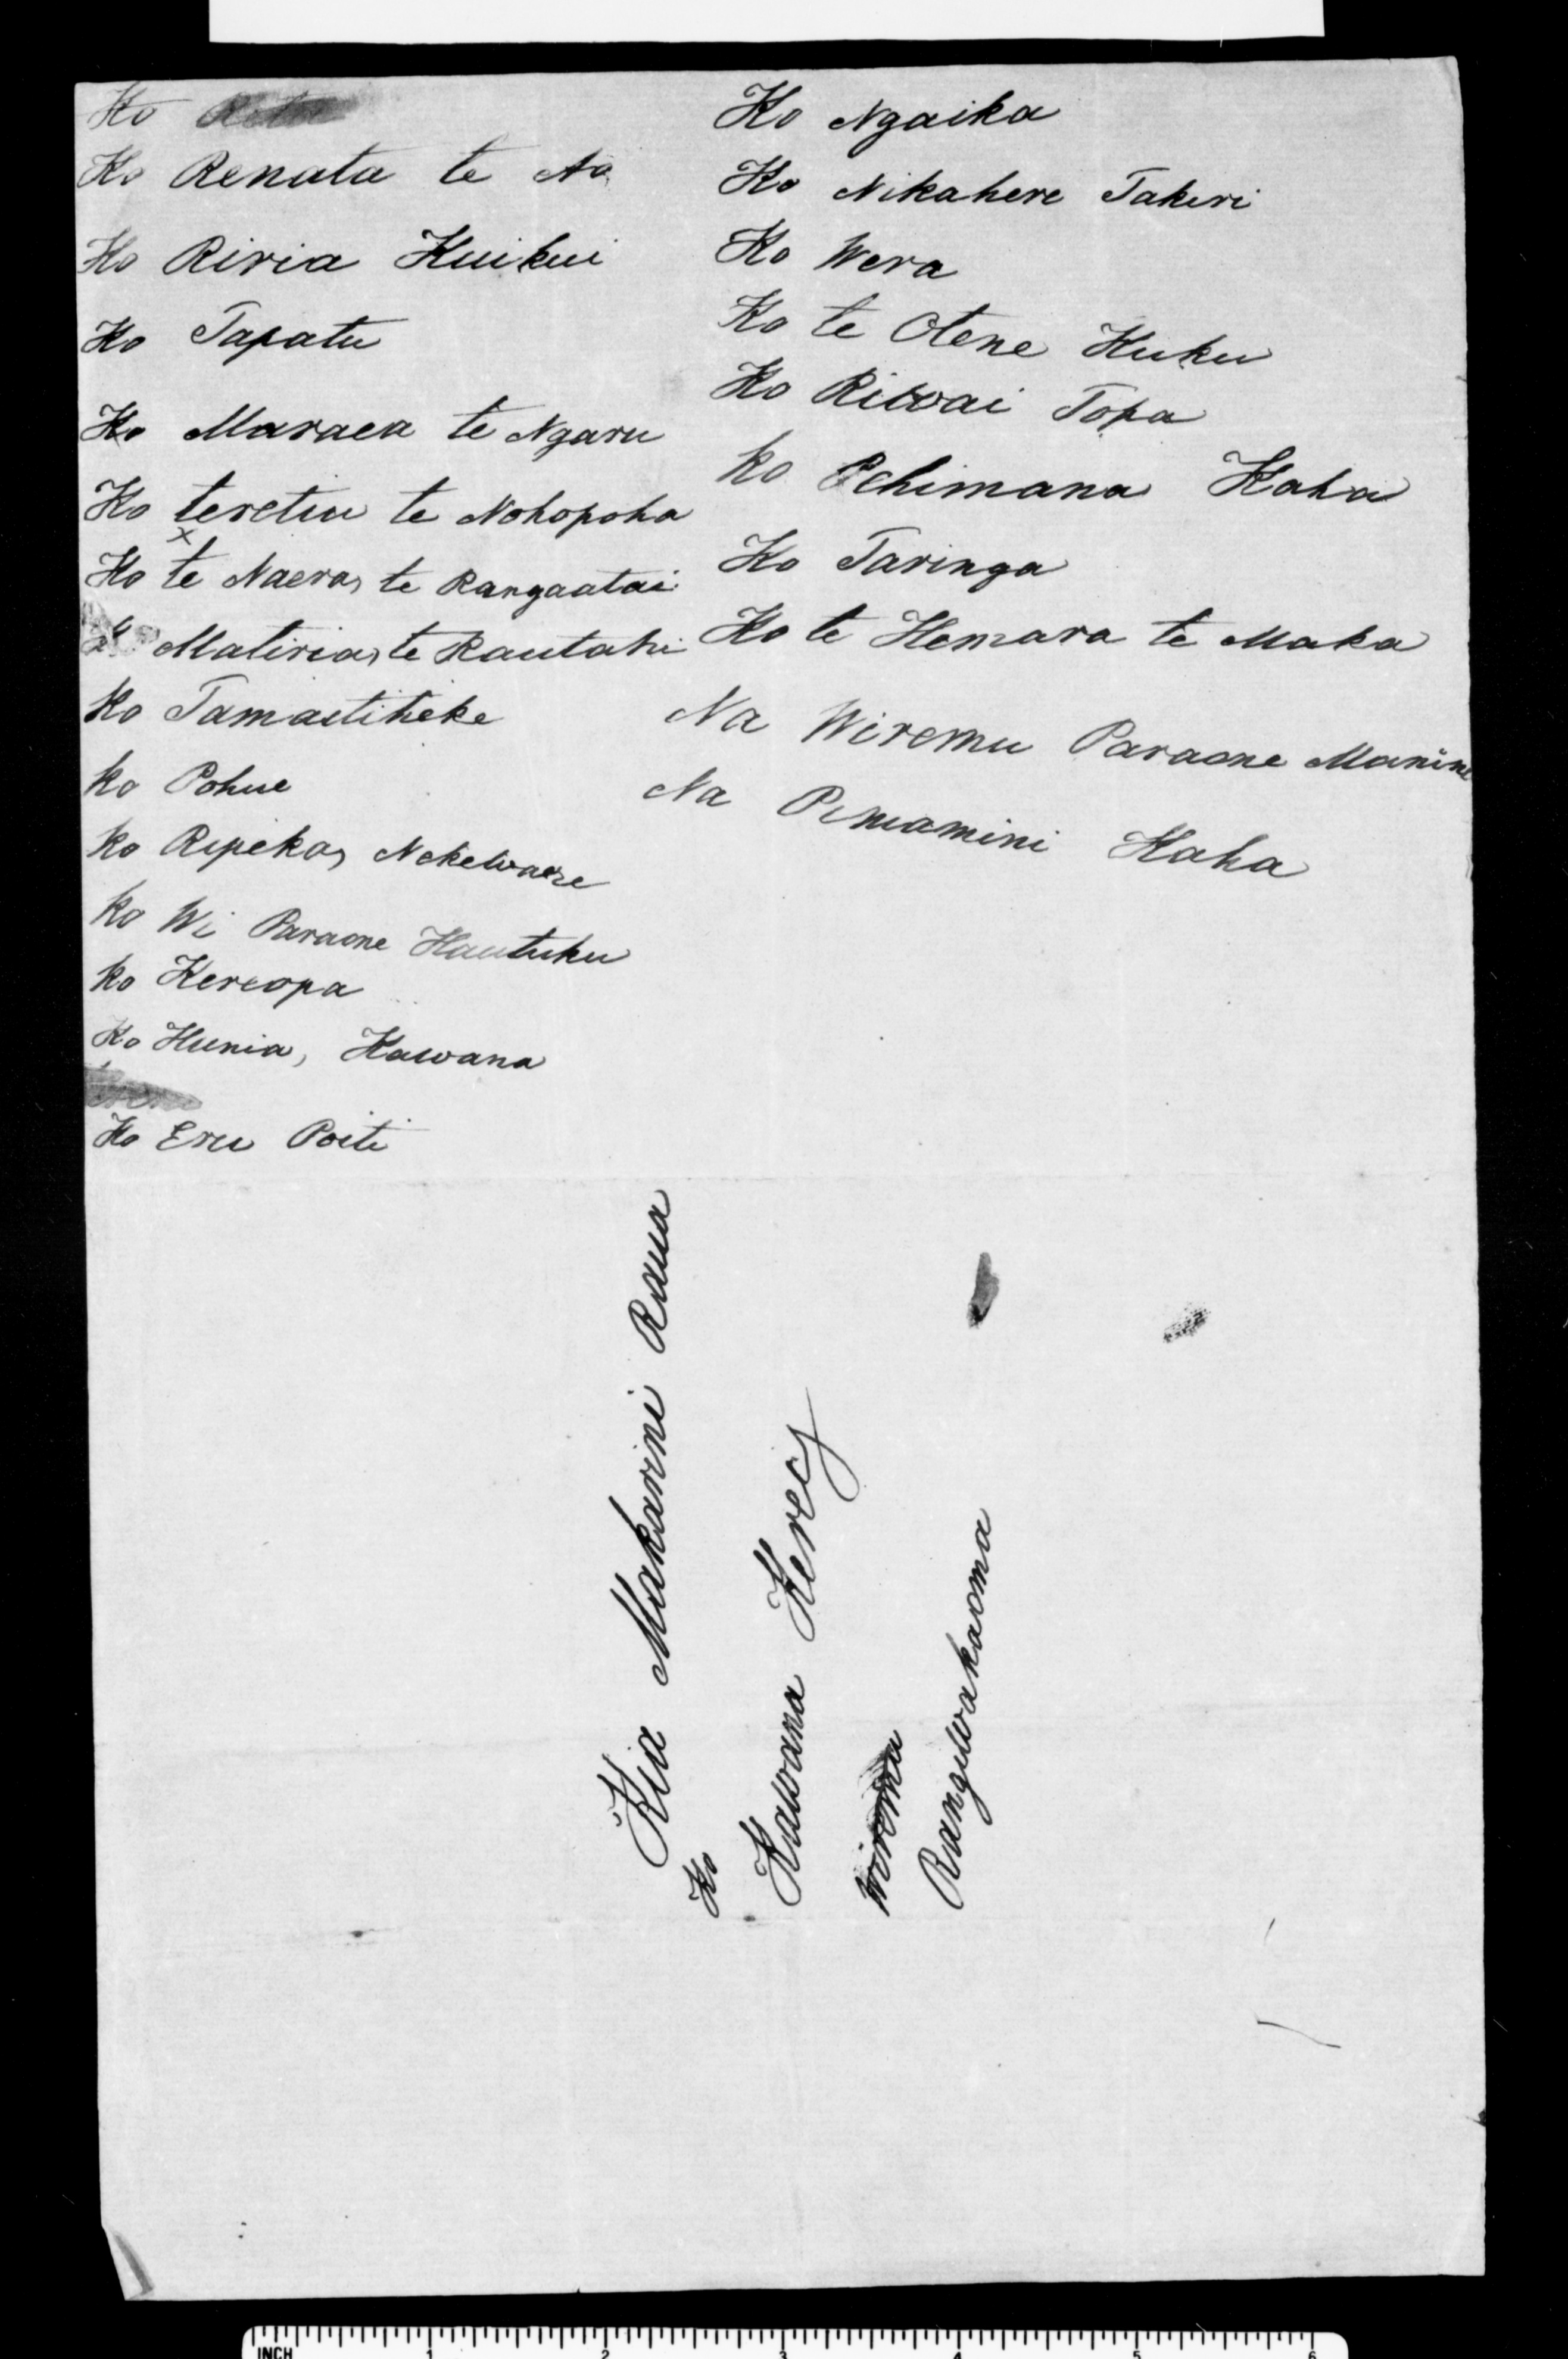 Ko
Ko Renata te Ao
Ko Riria Kuikui
Ko Tapatu
Ko Maraea te Ngaru
Ko teretiu te Nohopoha
Ko te Naera, te Rangaatai
Matiria, te Rautahi
Ko Tamaitiheke
Ko Pohue
Ko Ripeka, Nekewaere
Ko Wi Paraone Hautuku
Ko Kereopa
Ko Hunia, Kawana
Ko Eru Poiti
Ko Ngaika
Ko Nikahere Takiri
Ko Wera
Ko te Otene Kuku
Ko Riwai Topa
Ko Pehimana Kaha
Ko Taringa
Ko te Hemara te Maka
Na Wiremu Paraone Manine
Na Piniamini Kaha
Kia Makarini Raua
Ko
Kawana Kerei
Wirema
Rangiwakaoma
INCH 1 2 3 4 5 6